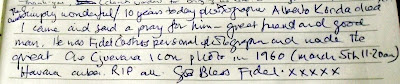 Simply wonderful / 10 years today photographer Alberto Korda died
I came and said a prayer for him - great friend and good
man. He was Fidel Castro's personal photographer and made the
great Che Guevara icon photo in 1960 (march 5th 11-20am)
Havana cuba. R.I.P au. God Bless Fidel. xxxxx